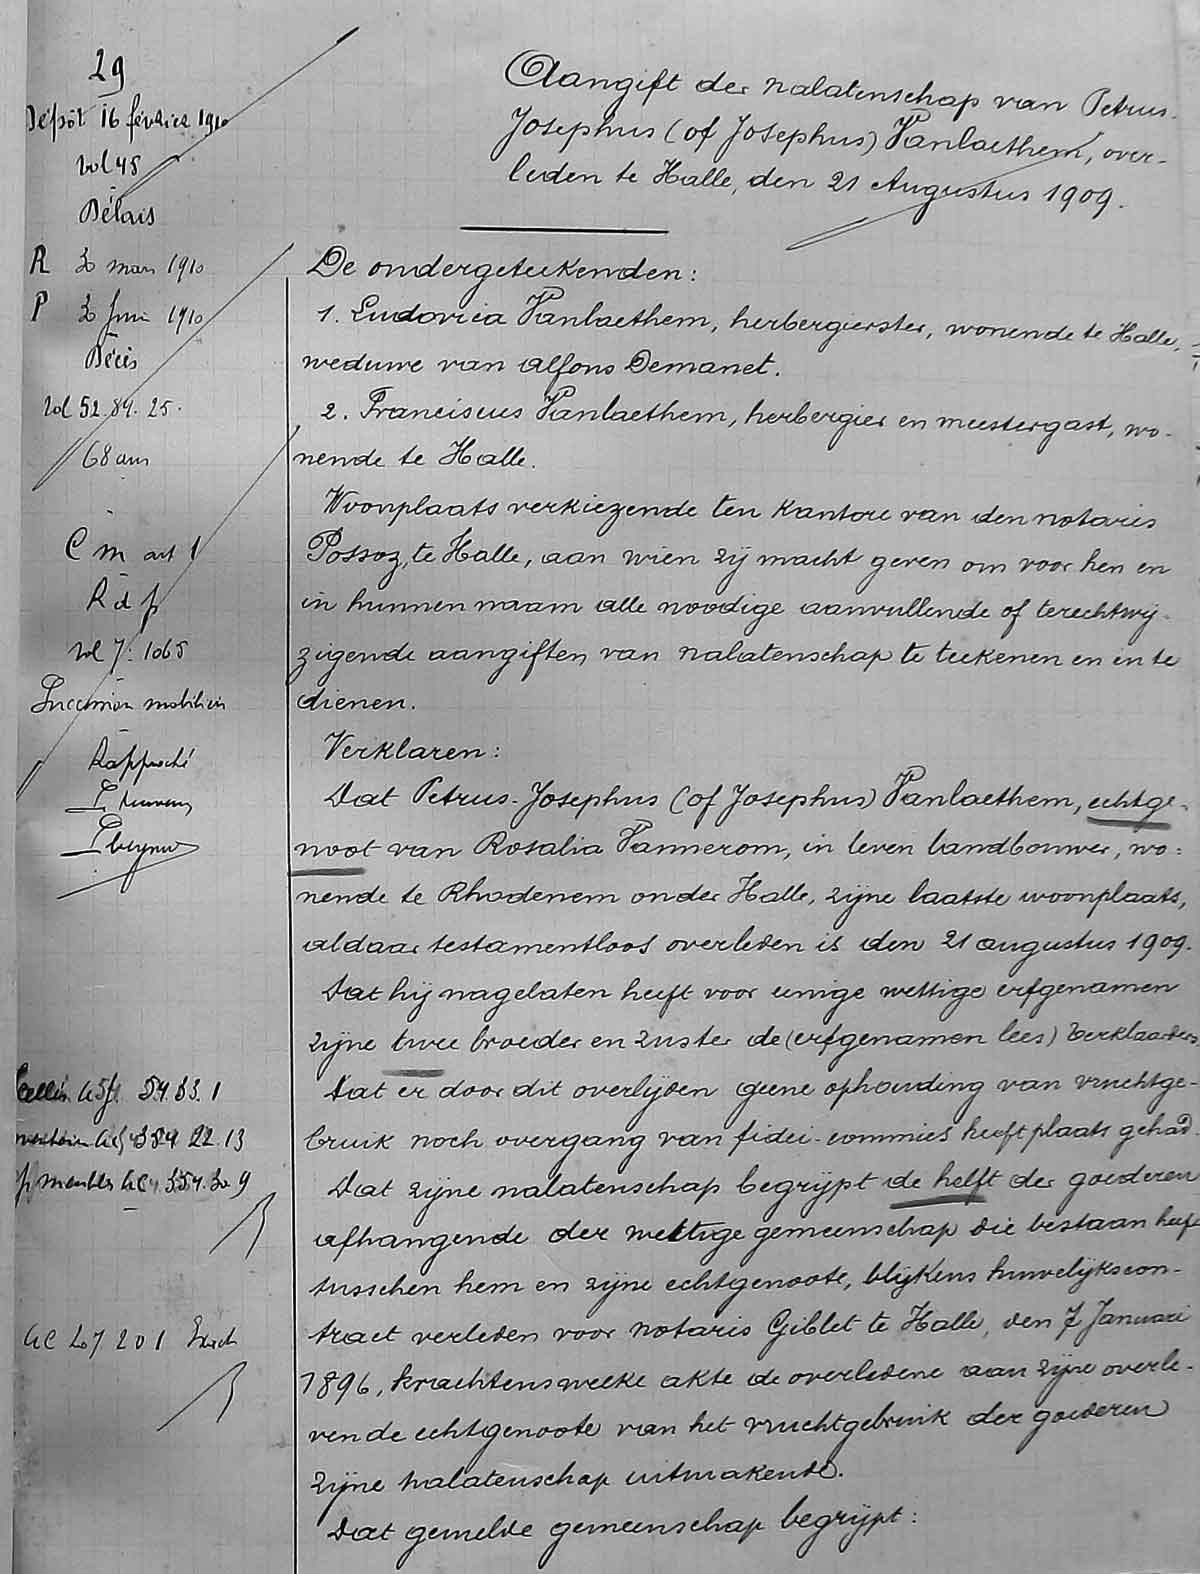 29
Dépôt 16 février 1910
vol 45
Délais
R 30 mars 1910
P 30 Juin 1910
Décès
Vol 52. 84. 25.
68 ans
C m art 1
R d p
vol 7: 1065
Succession mobilière
Rapproché
Aangift der nalatenschap van Petrus-
Josephus (of Josephus) Vanlaethem, over-
leden te Halle, den 21 Augustus 1909.
De ondergeteekenden:
1. Ludovica Vanlaethem, herbergierster, wonende te Halle,
weduwe van Alfons Demanet.
2. Franciscus Vanlaethem, herbergier en meestergast, wo-
nende te Halle.
Woonplaats verkiezende ten kantore van den notaris
Possoz, te Halle, aan wien zij macht geven om voor hen en
in hunnen naam alle noodige aanvullende of terechtwij-
zigende aangiften van nalatenschap te teekenen en in te
dienen.
Verklaren:
Dat Petrus-Josephus (of Josephus) Vanlaethem, echtge-
noot van Rosalia Vannerom, in leven landbouwer, wo-
nende te Rhodenem onder Halle, zijne laatste woonplaats,
aldaar testamentloos overleden is den 21 augustus 1909.
Dat hij nagelaten heeft voor eenige wettige erfgenamen
zijne twee broeder en zuster de (erfgenamen lees) Verklaarders
Dat er door dit overlijden geene ophouding van vruchtge-
bruik noch overgang van fidei-commies heeft plaats gehad.
Dat zijne nalatenschap begrijpt de helft der goederen
afhangende der wettige gemeenschap die bestaan heeft
tusschen hem en zijne echtgenoote, blijkens huwelijkscon-
tract verleden voor notaris Giblet te Halle, den 7 Januari
1896, krachtens welke akte de overledene aan zijne overle-
vende echtgenoote van het vruchtgebruik der goederen
zijne nalatenschap uitmakende.
Dat gemelde gemeenschap begrijpt:
54.33.1
384 22.13
meubles 354.30 9
207 201